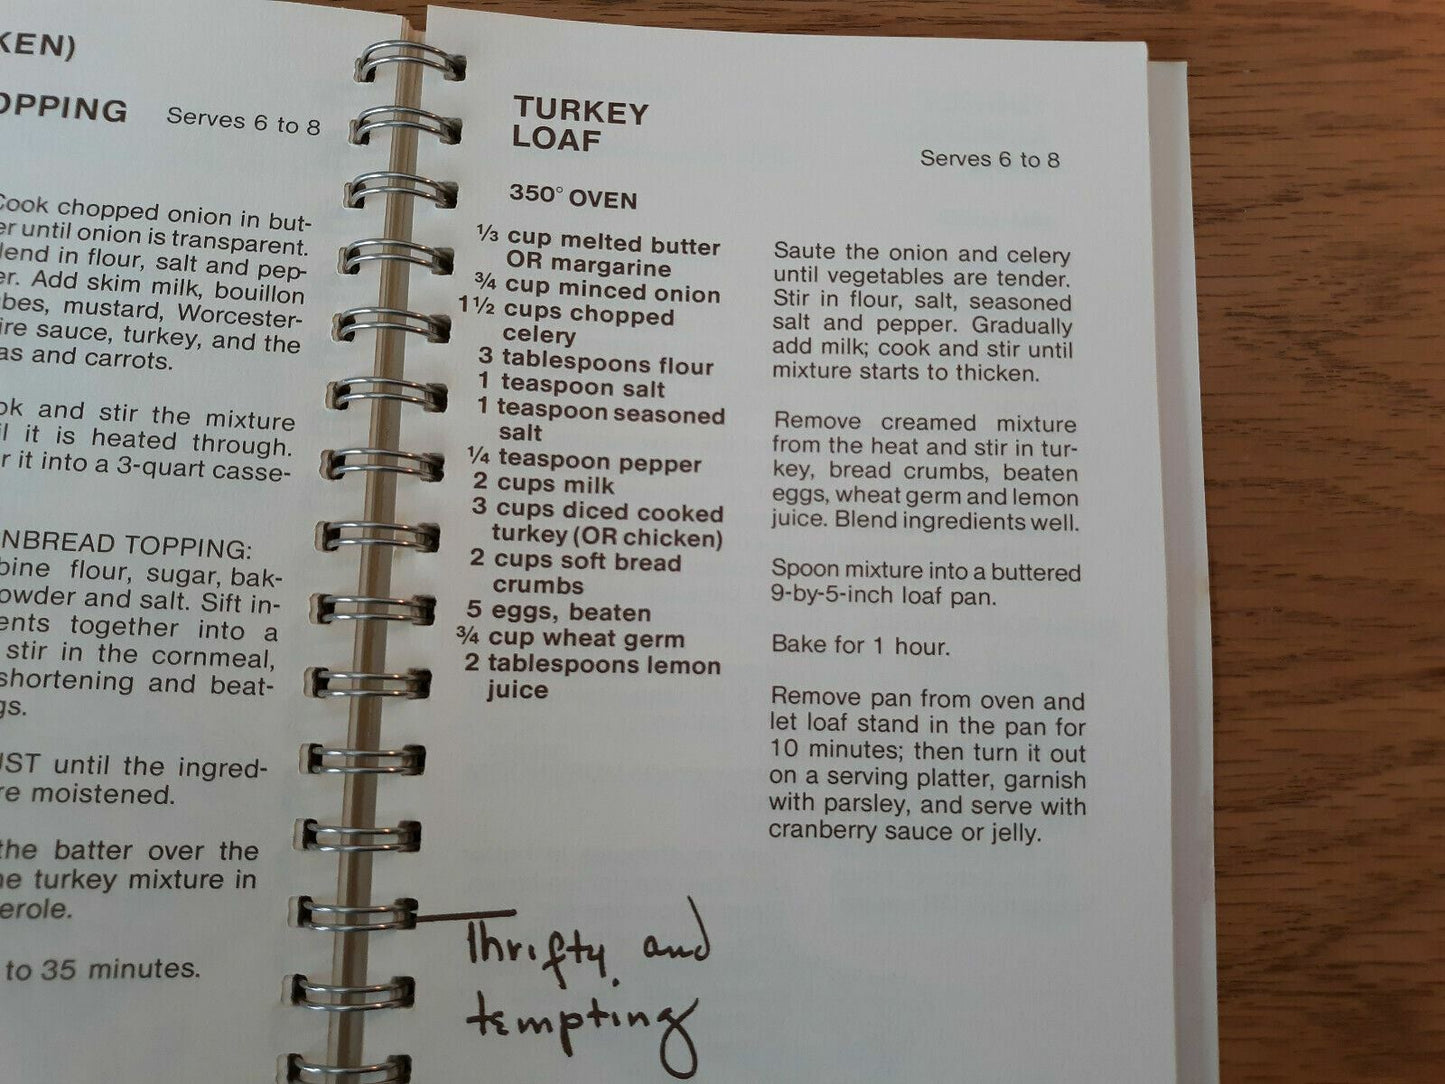 KEN)
OPPING
Serves 6 to 8
Cook chopped onion in but-
er until onion is transparent.
lend in flour, salt and pep-
er. Add skim milk, bouillon
bes, mustard, Worcester-
ire sauce, turkey, and the
as and carrots.
ok and stir the mixture
il it is heated through.
r it into a 3-quart casse-
NBREAD TOPPING:
bine flour, sugar, bak-
owder and salt. Sift in-
ents together into a
stir in the cornmeal,
shortening and beat-
gs.
UST until the ingred-
re moistened.
the batter over the
he turkey mixture in
erole.
to 35 minutes.
TURKEY
LOAF
Serves 6 to 8
350° OVEN
1/3 cup melted butter
OR margarine
3/4 cup minced onion
1 1/2 cups chopped
celery
3 tablespoons flour
1 teaspoon salt
1 teaspoon seasoned
salt
1/4 teaspoon pepper
2 cups milk
3 cups diced cooked
turkey (OR chicken)
2 cups soft bread
crumbs
5 eggs, beaten
3/4 cup wheat germ
2 tablespoons lemon
juice
Saute the onion and celery
until vegetables are tender.
Stir in flour, salt, seasoned
salt and pepper. Gradually
add milk; cook and stir until
mixture starts to thicken.
Remove creamed mixture
from the heat and stir in tur-
key, bread crumbs, beaten
eggs, wheat germ and lemon
juice. Blend ingredients well.
Spoon mixture into a buttered
9-by-5-inch loaf pan.
Bake for 1 hour.
Remove pan from oven and
let loaf stand in the pan for
10 minutes; then turn it out
on a serving platter, garnish
with parsley, and serve with
cranberry sauce or jelly.
Thrifty and
tempting